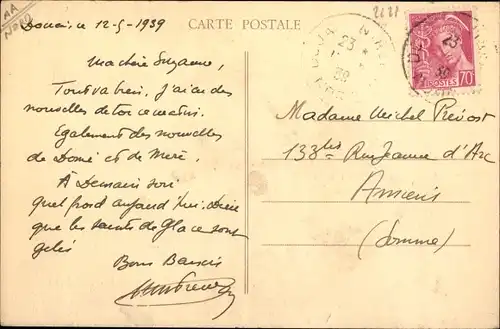 AA
NORD
Douai, le 12-5-1939
CARTE POSTALE
2621
Ma chère Suzanne,
Tout va bien. J'ai eu des
nouvelles de toi ce matin.
Egalement des nouvelles
de Domé et de Mérè.
À Demain soir
quel froid aujourd'hui. Dire
que les saints de Glace sont
gelés
Bons Baisers
DOUAI NORD
23
39
POSTES 70c
Madame Michel Prévost
133 bis Rue Jeanne d'Arc
Amiens
(Somme)